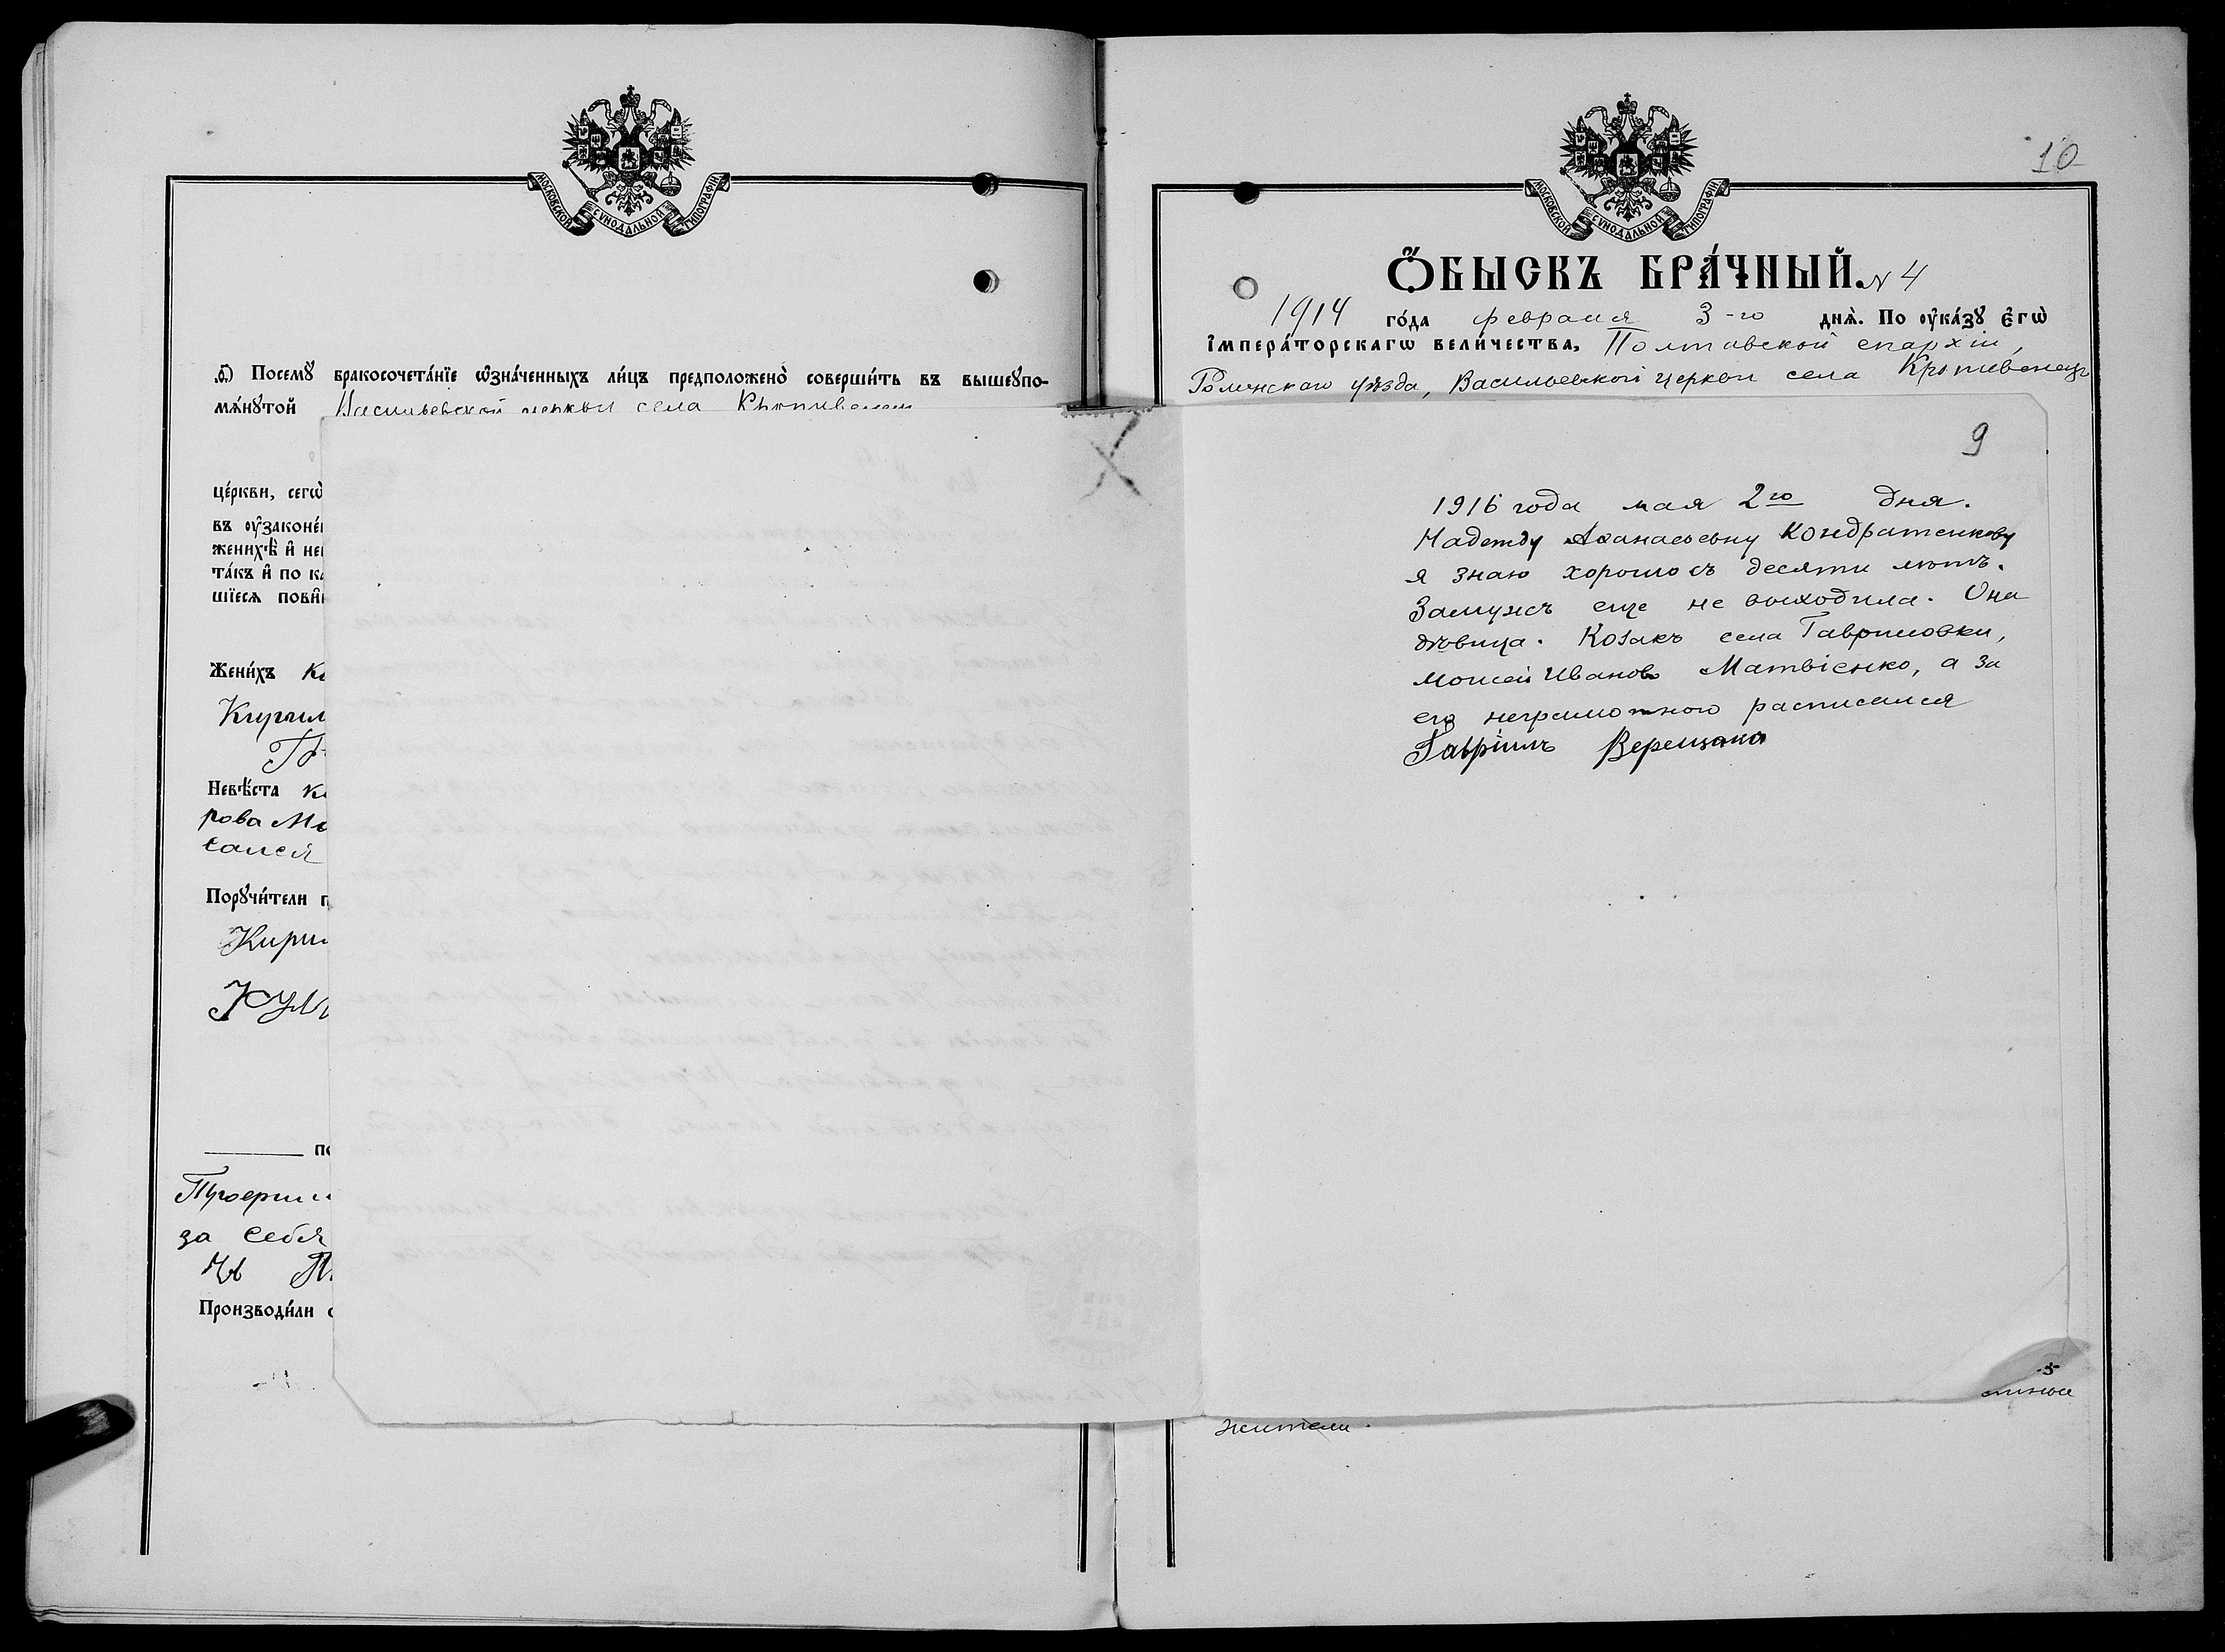 МОСКОВСКОЙ СѴНОДАЛЬНОЙ ТИПОГРАФІИ
з҃) Посемꙋ бракосочета́нїе ѡ҆зна́ченныхъ ли́цъ предположено̀ соверши́ть въ вышеꙋпо-
мѧ́нꙋтой Васильевской церкви села Кропивенец
це́ркви, сегѡ̀
въ ᲂу҆законе́н
женихѣ̀ и҆ не
та́къ и҆ по ка
шїесѧ пови́н
Жени́хъ Ка
Кирил
Невѣ́ста Ка
рова Ма
сался
Порꙋчи́тели п
Кири
за себя
Производи́ли
МОСКОВСКОЙ СѴНОДАЛЬНОЙ ТИПОГРАФІИ
10
Ѻ҆́БЫСКЪ БРА́ЧНЫЙ. № 4
1914 го́да февраля 3-го днѧ̀. По ᲂу҆ка́зꙋ є҆гѡ̀
і҆мпера́торскагѡ вели́чества, Полтавской епархіи,
Роменскаго уѣзда, Васильевской церкви села Кропивенец
9
1916 года мая 2го дня.
Надежду Аѳанасьевну Кондратенкову
я знаю хорошо съ десяти лѣтъ.
Замужъ еще не выходила. Она
дѣвица. Козакъ села Гавриловки,
Моисей Иванов Матвіенко, а за
его неграмотного расписался
Гавріилъ Верещака
жители.